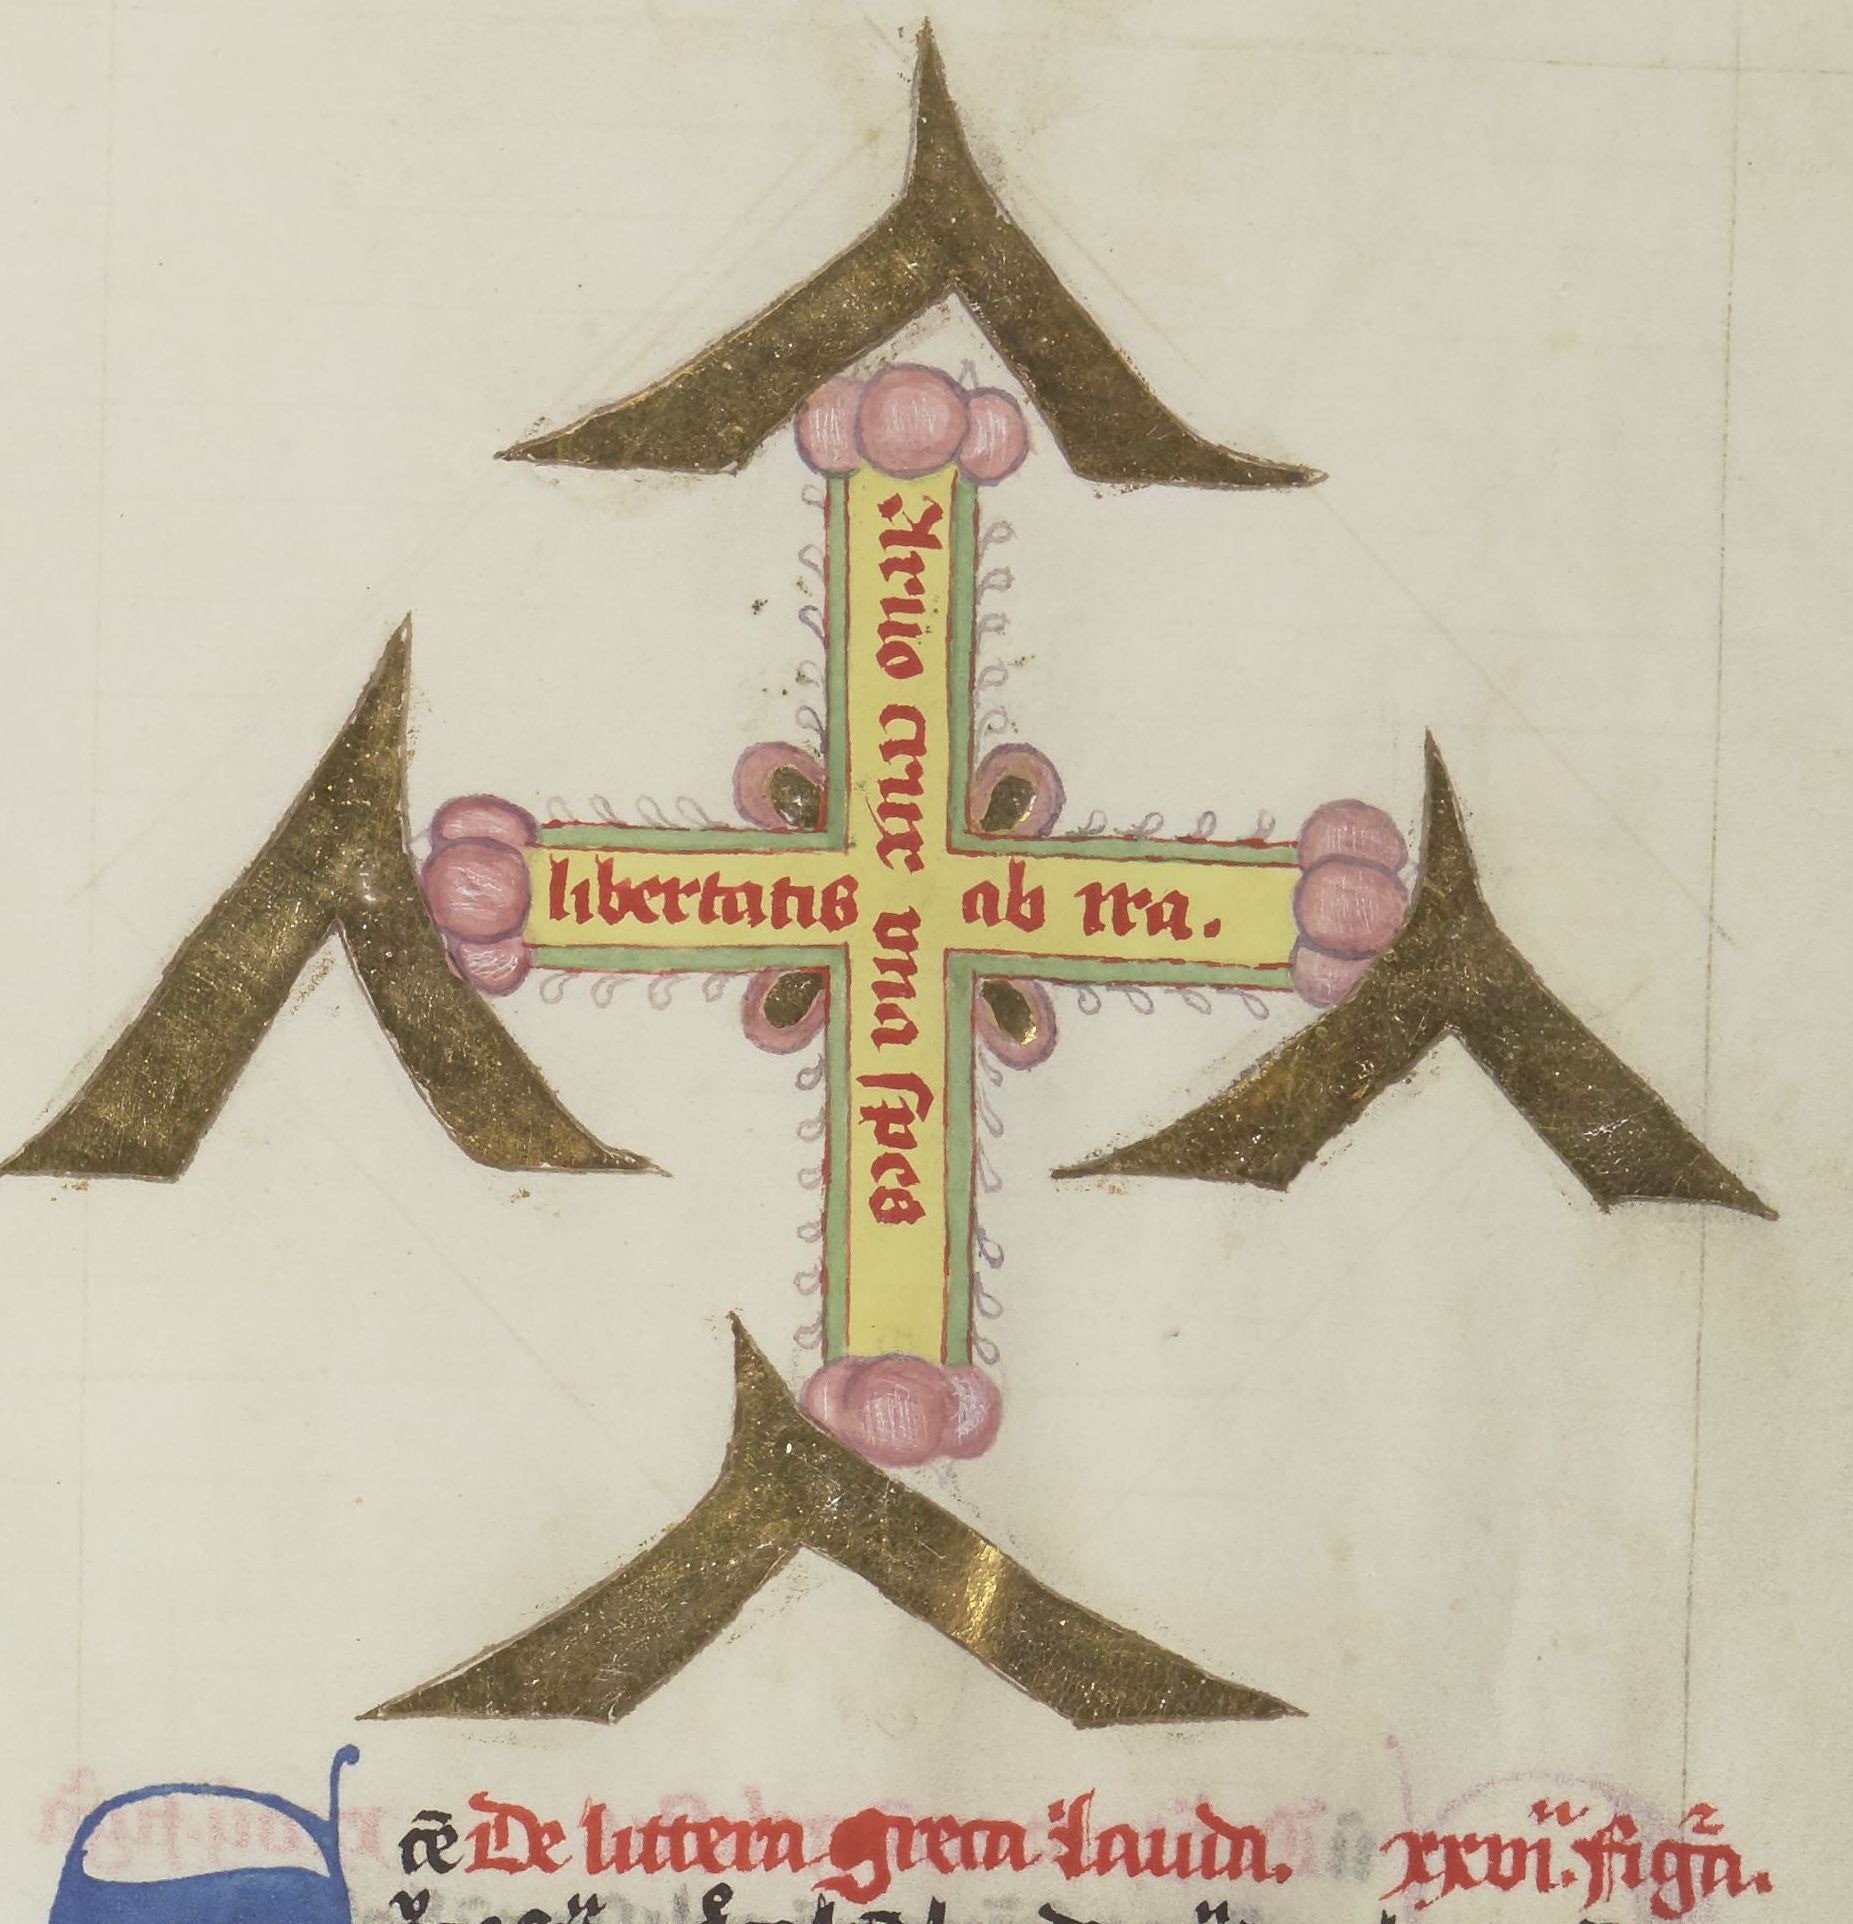 Kruo crux viua spes
libertatis ab ira.
cē De littera greca Lauda. xxvi. figra.